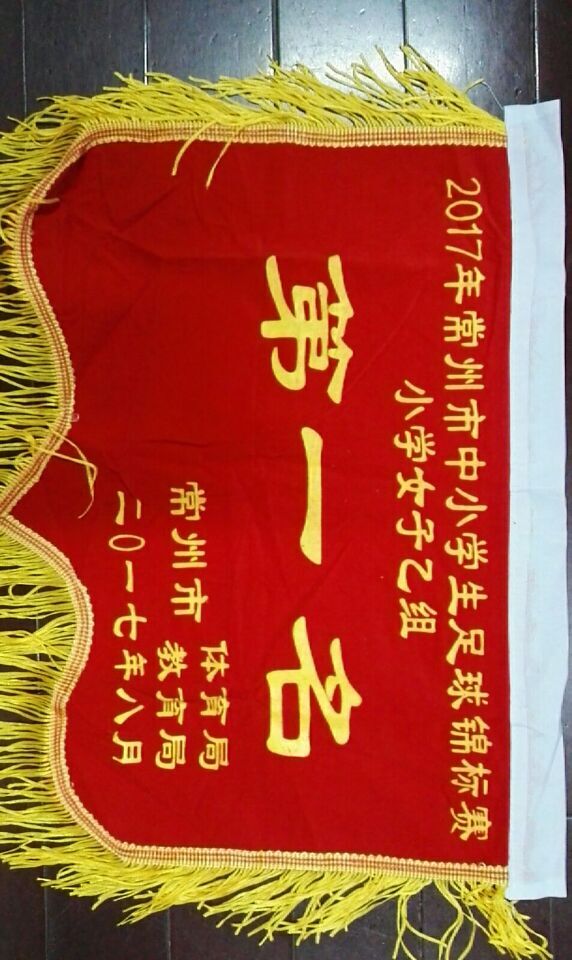 2017年常州市中小学生足球锦标赛
小学女子乙组
第一名
常州市 体育局
教育局
二〇一七年八月